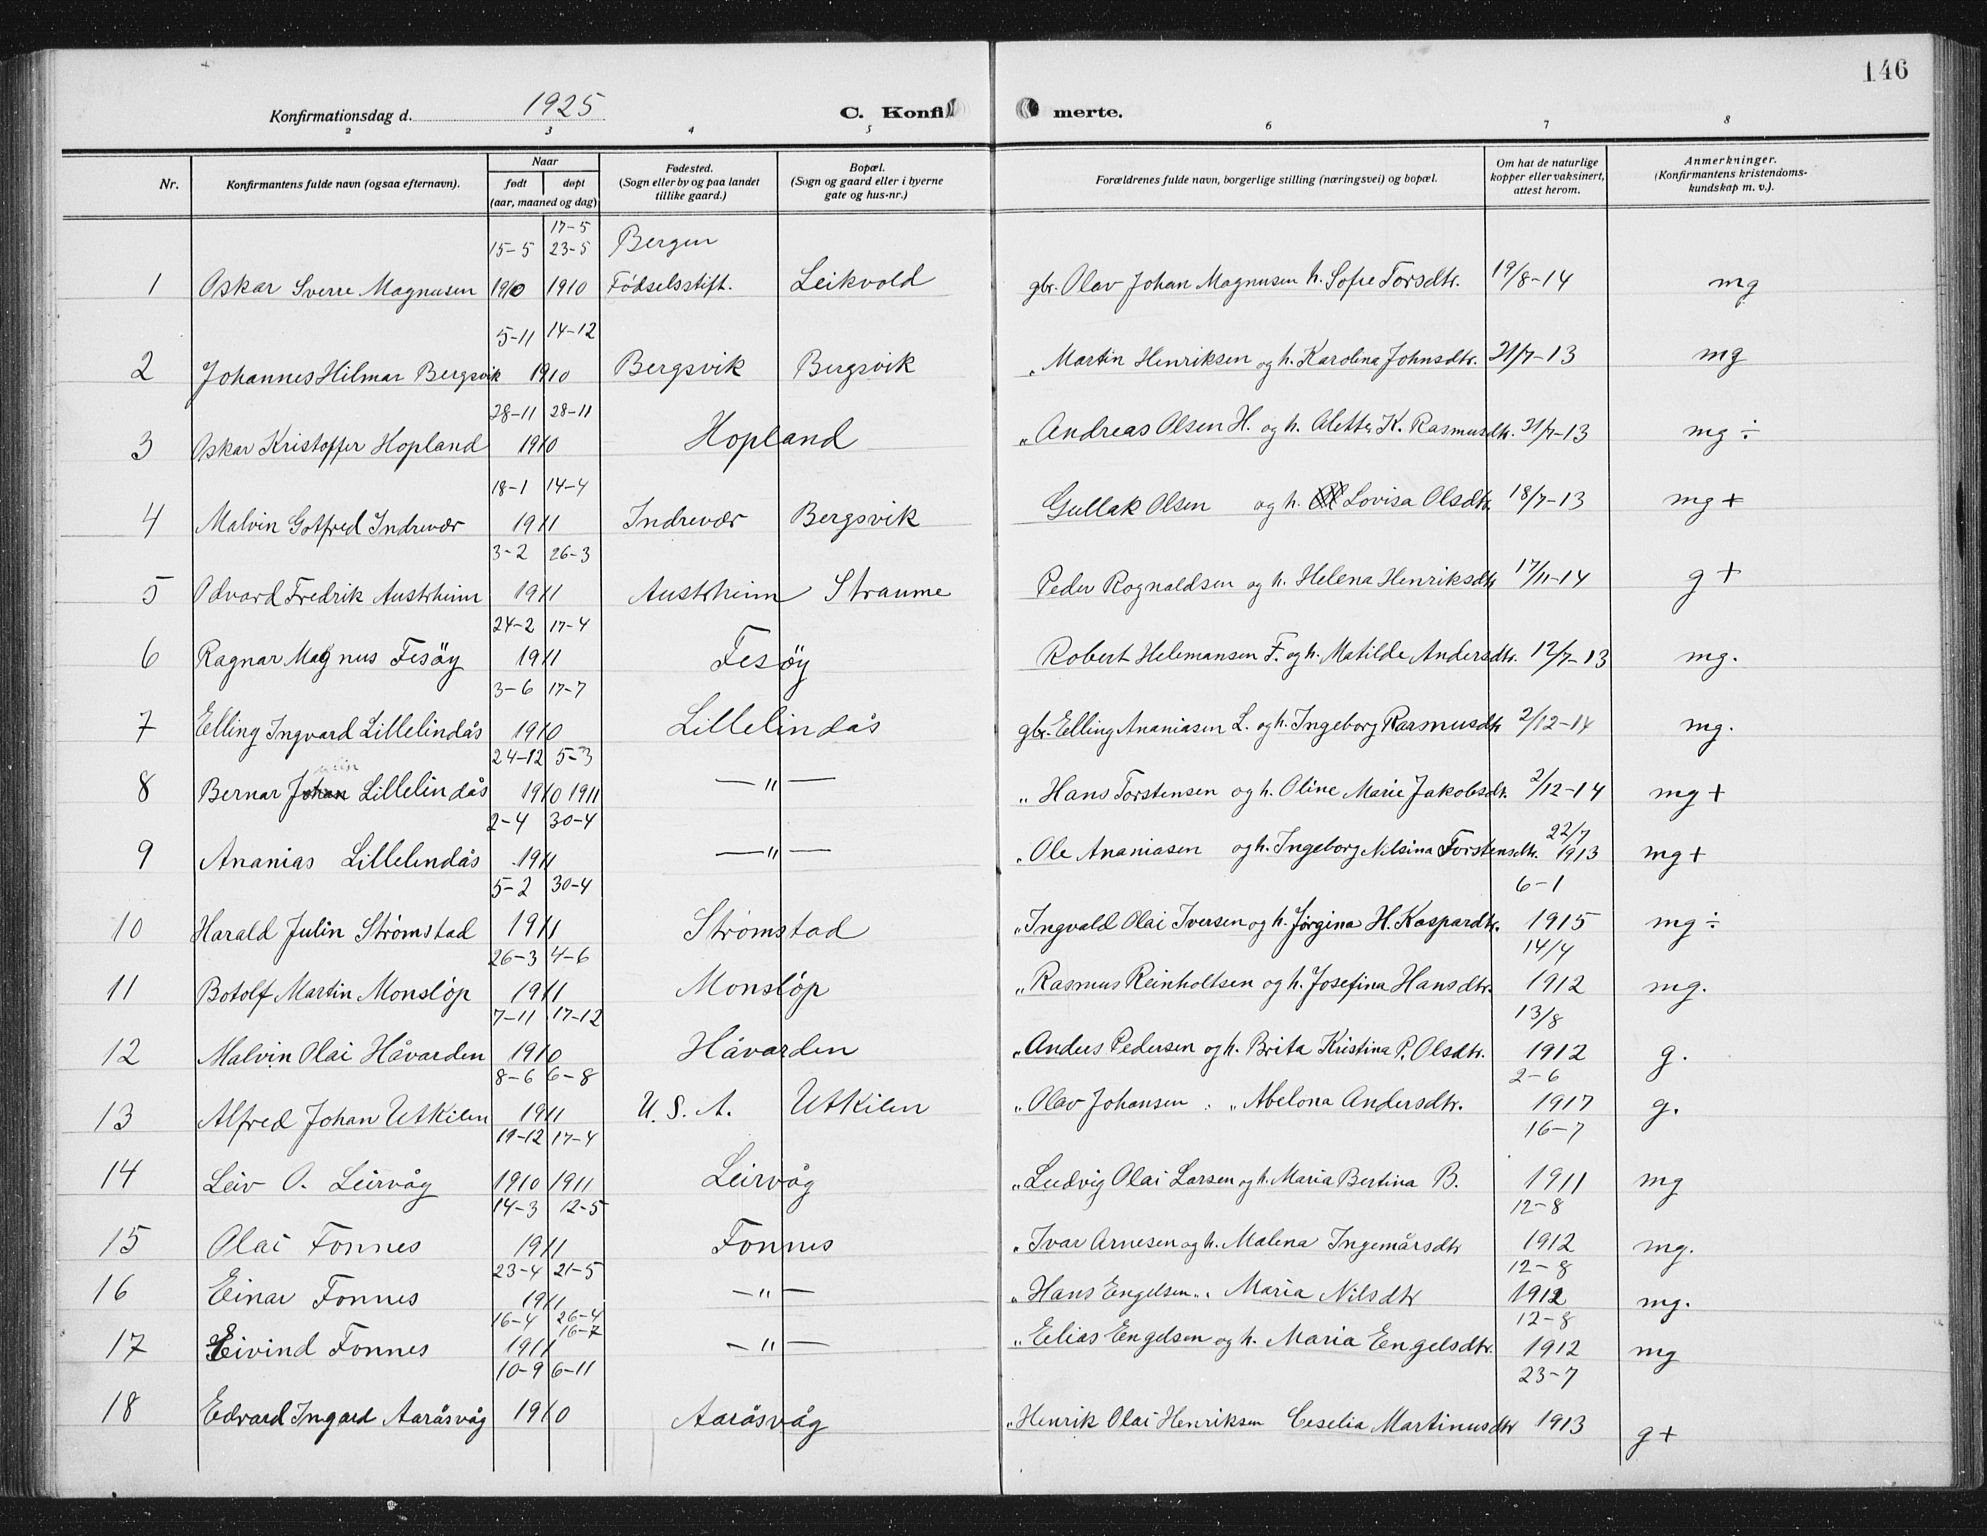 146
Konfirmationsdag d. 1925 C. Konfirmerte.
2 3 4 5 6 7 8
Nr. Konfirmantens fulde navn (ogsaa efternavn). Naar født døpt (aar, maaned og dag) Fødested. (Sogn eller by og paa landet tillike gaard.) Bopæl. (Sogn og gaard eller i byerne gate og hus-nr.) Forældrenes fulde navn, borgerlige stilling (næringsvei) og bopæl. Om hat de naturlige kopper eller vaksinert, attest herom. Anmerkninger. (Konfirmantens kristendomskundskap m. v.).
17-5
15-5 23-5 Bergen
1 Oskar Sverre Magnusen 1910 1910 Fødselsstift. Leikvold gbr. Olav Johan Magnusen h. Sofie Torsdtr. 19/8-14 mg
5-11 14-12
2 Johannes Hilmar Bergsvik 1910 Bergsvik Bergsvik " Martin Henriksen og h. Karolina Johnsdtr. 21/7-13 mg
28-11 28-11
3 Oskar Kristoffer Hopland 1910 Hopland " Andreas Olsen H. og h. Alette K. Rasmusdtr. 21/7-13 mg ÷
18-1 14-4
4 Malvin Gotfred Indrevær 1911 Indrevær Bergsvik Gullak Olsen og h. Lovisa Olsdtr. 18/7-13 mg +
3-2 26-3
5 Odvard Fredrik Austrheim 1911 Austrheim Straume Peder Rognaldsen og h. Helena Henriksdtr 17/11-14 g +
24-2 17-4
6 Ragnar Magnus Fesöy 1911 Fesöy Robert Helemansen F. og h. Matilde Andersdtr. 12/7-13 mg.
3-6 17-7
7 Elling Ingvard Lillelindås 1910 Lillelindås gbr. Elling Ananiasen L. og h. Ingeborg Rasmusdtr 2/12-14 mg.
24-12 5-3
8 Bernar Johan Lillelindås 1910 1911 — " — " Hans Torstensen og h. Oline Marie Jakobsdtr. 2/12-14 mg +
2-4 30-4 22/7
9 Ananias Lillelindås 1911 — " — " Ole Ananiasen og h. Ingeborg Nilsina Torstensdtr. 1913 mg +
5-2 30-4 6-1
10 Harald Julin Strømstad 1911 Strømstad " Ingvald Olai Iversen og h. Jørgina H. Kaspardtr. 1915 mg ÷
26-3 4-6 14/4
11 Botolf Martin Monslöp 1911 Monslöp " Rasmus Reinholtsen og h. Josefina Hansdtr. 1912 mg.
7-11 17-12 13/8
12 Malvin Olai Håvarden 1910 Håvarden " Anders Pedersen og h. Brita Kristina P. Olsdtr. 1912 g.
8-6 6-8 2-6
13 Alfred Johan Utkilen 1911 U. S. A. Utkilen " Olav Johansen " " Abelona Andersdtr. 1917 g.
19-12 17-4 16-7
14 Leiv O. Leirvåg 1910 1911 Leirvåg " Ludvig Olai Larsen og h. Maria Bertina B. 1911 mg
14-3 12-5 12-8
15 Olai Fonnes 1911 Fonnes " Ivar Arnesen og h. Malena Ingemårsdtr 1912 mg.
23-4 21-5 12-8
16 Einar Fonnes 1911 — " — " Hans Engelsen " " Maria Nilsdtr 1912 mg.
16-4 26-4 16-7 12-8
17 Eivind Fonnes 1911 — " — " Elias Engelsen og h. Maria Engelsdtr. 1912 mg
10-9 6-11 23-7
18 Edvard Ingard Aaråsvåg 1910 Aaråsvåg " Henrik Olai Henriksen Ceselia Martinusdtr 1913 g +